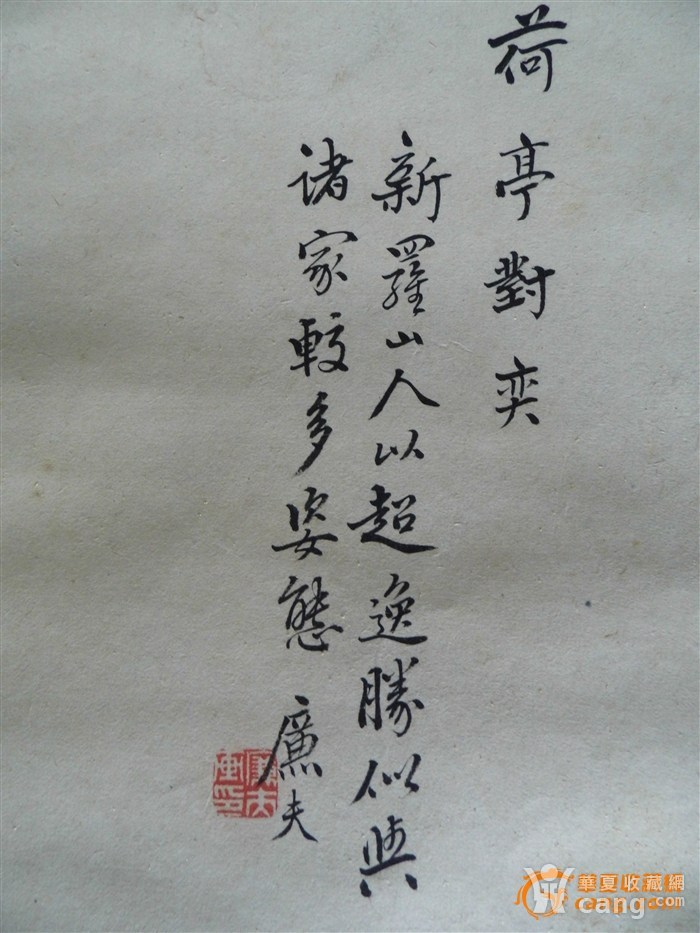 荷亭對奕
新羅山人以超逸勝似與
諸家較多姿態 廉夫
華夏收藏網
cang.com